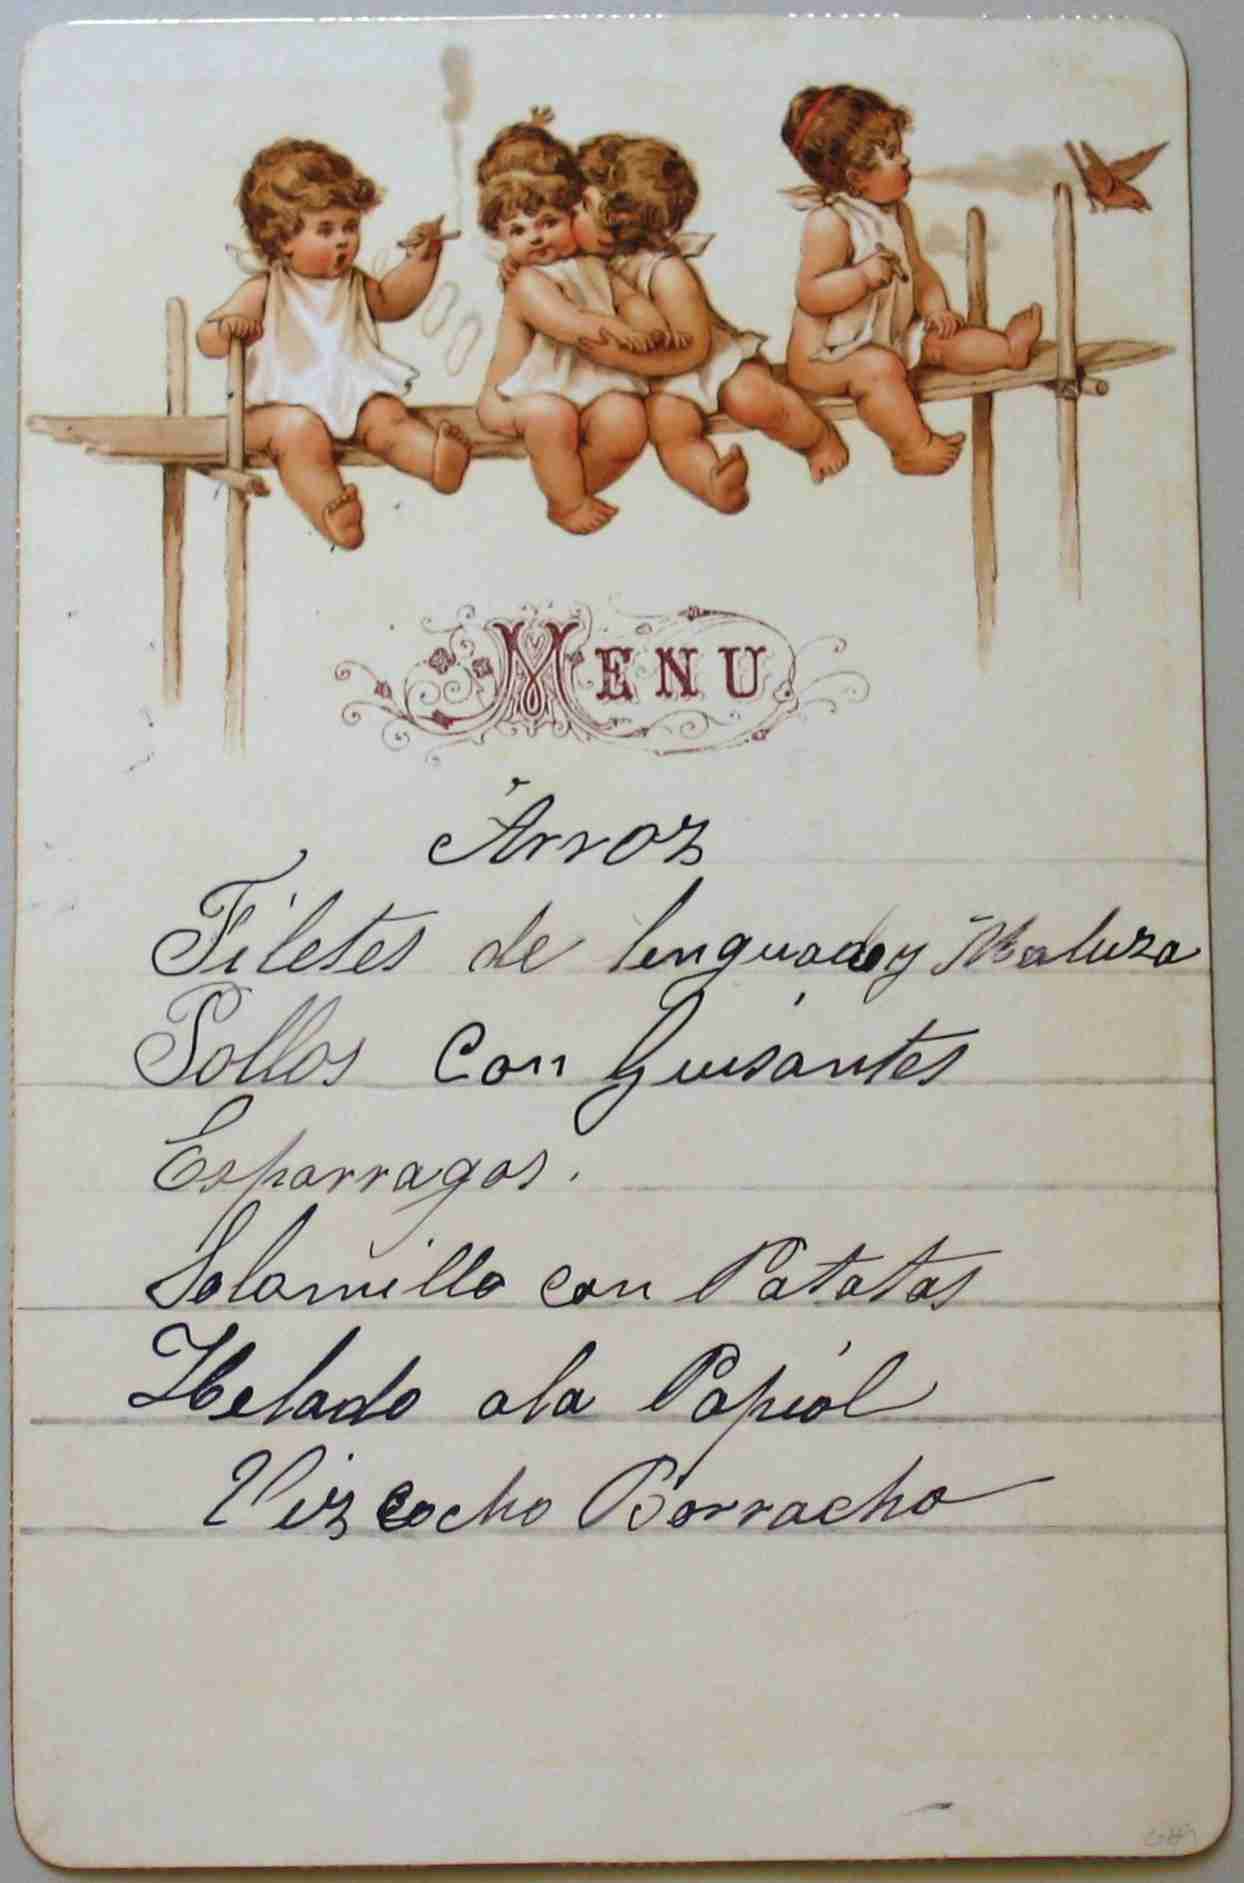 MENU
Arroz
Filetes de lenguado y Maluza
Pollos con Guisantes
Esparragos.
Solomillo con Patatas
Helado a la Papiol
Vizcocho Borracho